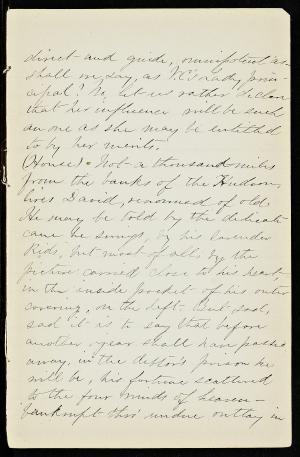 direct and guide, omnipotent as
shall we say, as V.C's Lady prin-
cipal? No, let us rather declare
that her influence will be such
an one as she may be entitled
to by her merits.
(House). Not a thousand miles
from the banks of the Hudson,
lives David, renowned of old.
He may be told by the delicate
cane he swings, by his lavender
Kids, but most of all, by the
picture carried close to his heart
in the inside pocket of his outer
covering, on the left. But sad,
sad it is to say that before
another year shall have passed
away, in the debtor's prison he
will be, his fortune scattered
to the four winds of heaven -
bankrupt thro' undue outlay in